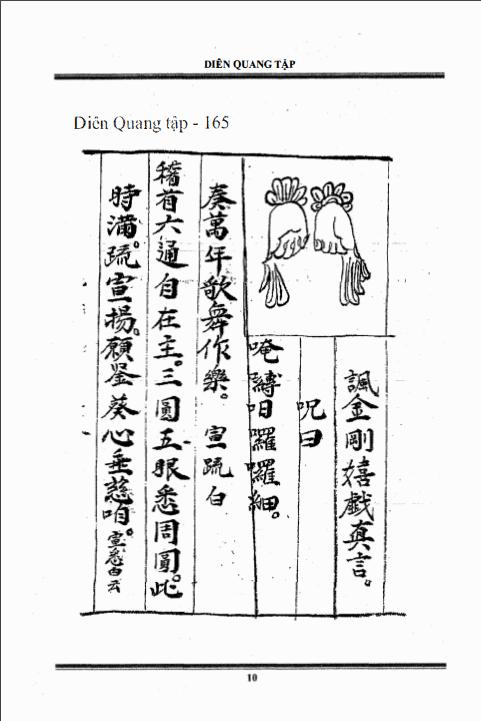 DIÊN QUANG TẬP
Diên Quang tập - 165
諷金剛嬉戲真言。
呪曰
唵嚩日囉囉細。
奏萬年歌舞作樂。 宣疏白
稽首六通自在主。三圓五眼悉周圓。此
時滿疏宣揚。願鉴葵心垂慈咱。白云
10